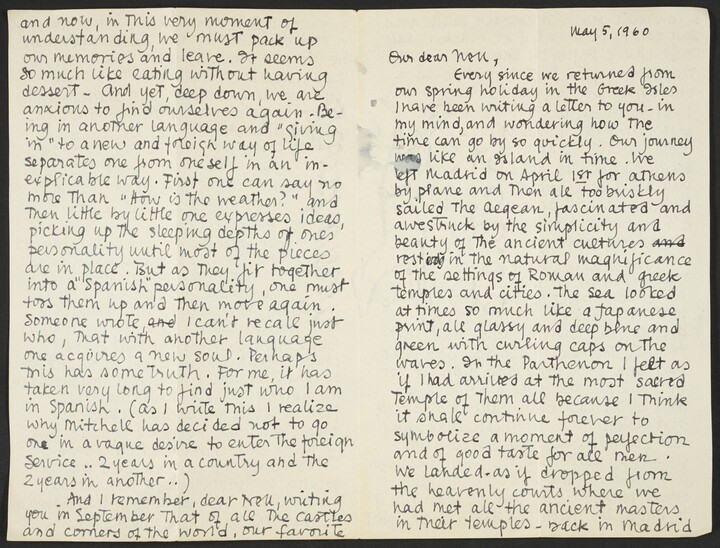 and now, in this very moment of
understanding, we must pack up
our memories and leave. It seems
so much like eating without having
dessert - And yet, deep down, we are
anxious to find ourselves again. Be-
ing in another language and "giving
in" to a new and foreign way of life
separates one from oneself in an in-
explicable way. First one can say no
more than "How is the weather?" and
then little by little one expresses ideas,
picking up the sleeping depths of ones
personality until most of the pieces
are in place. But as they fit together
into a "Spanish" personality, one must
toss them up and then move again.
Someone wrote, and I can't recall just
who, that with another language
one acquires a new soul. Perhaps
this has some truth. For me, it has
taken very long to find just who I am
in Spanish. (as I write this I realize
why Mitchell has decided not to go
on in a vague desire to enter the foreign
service .. 2 years in a country and the
2 years in another..)
And I remember, dear Nell, writing
you in September that of all the castles
and corners of the world, our favorite
May 5, 1960
Our dear Nell,
Every since we returned from
our spring holiday in the Greek Isles
I have been writing a letter to you - in
my mind, and wondering how the
time can go by so quickly. Our journey
was like an island in time. We
left Madrid on April 1st for athens
by plane and then all too briskly
sailed the Aegean, fascinated and
awestruck by the simplicity and
beauty of the ancient cultures and
resting in the natural magnificance
of the settings of Roman and greek
temples and cities. The sea looked
at times so much like a Japanese
print, all glassy and deep blue and
green with curling caps on the
waves. In the Parthenon I felt as
if I had arrived at the most sacred
temple of them all because I think
it shall continue forever to
symbolize a moment of perfection
and of good taste for all men.
We landed - as if dropped from
the heavenly courts where we
had met all the ancient masters
in their temples - back in Madrid